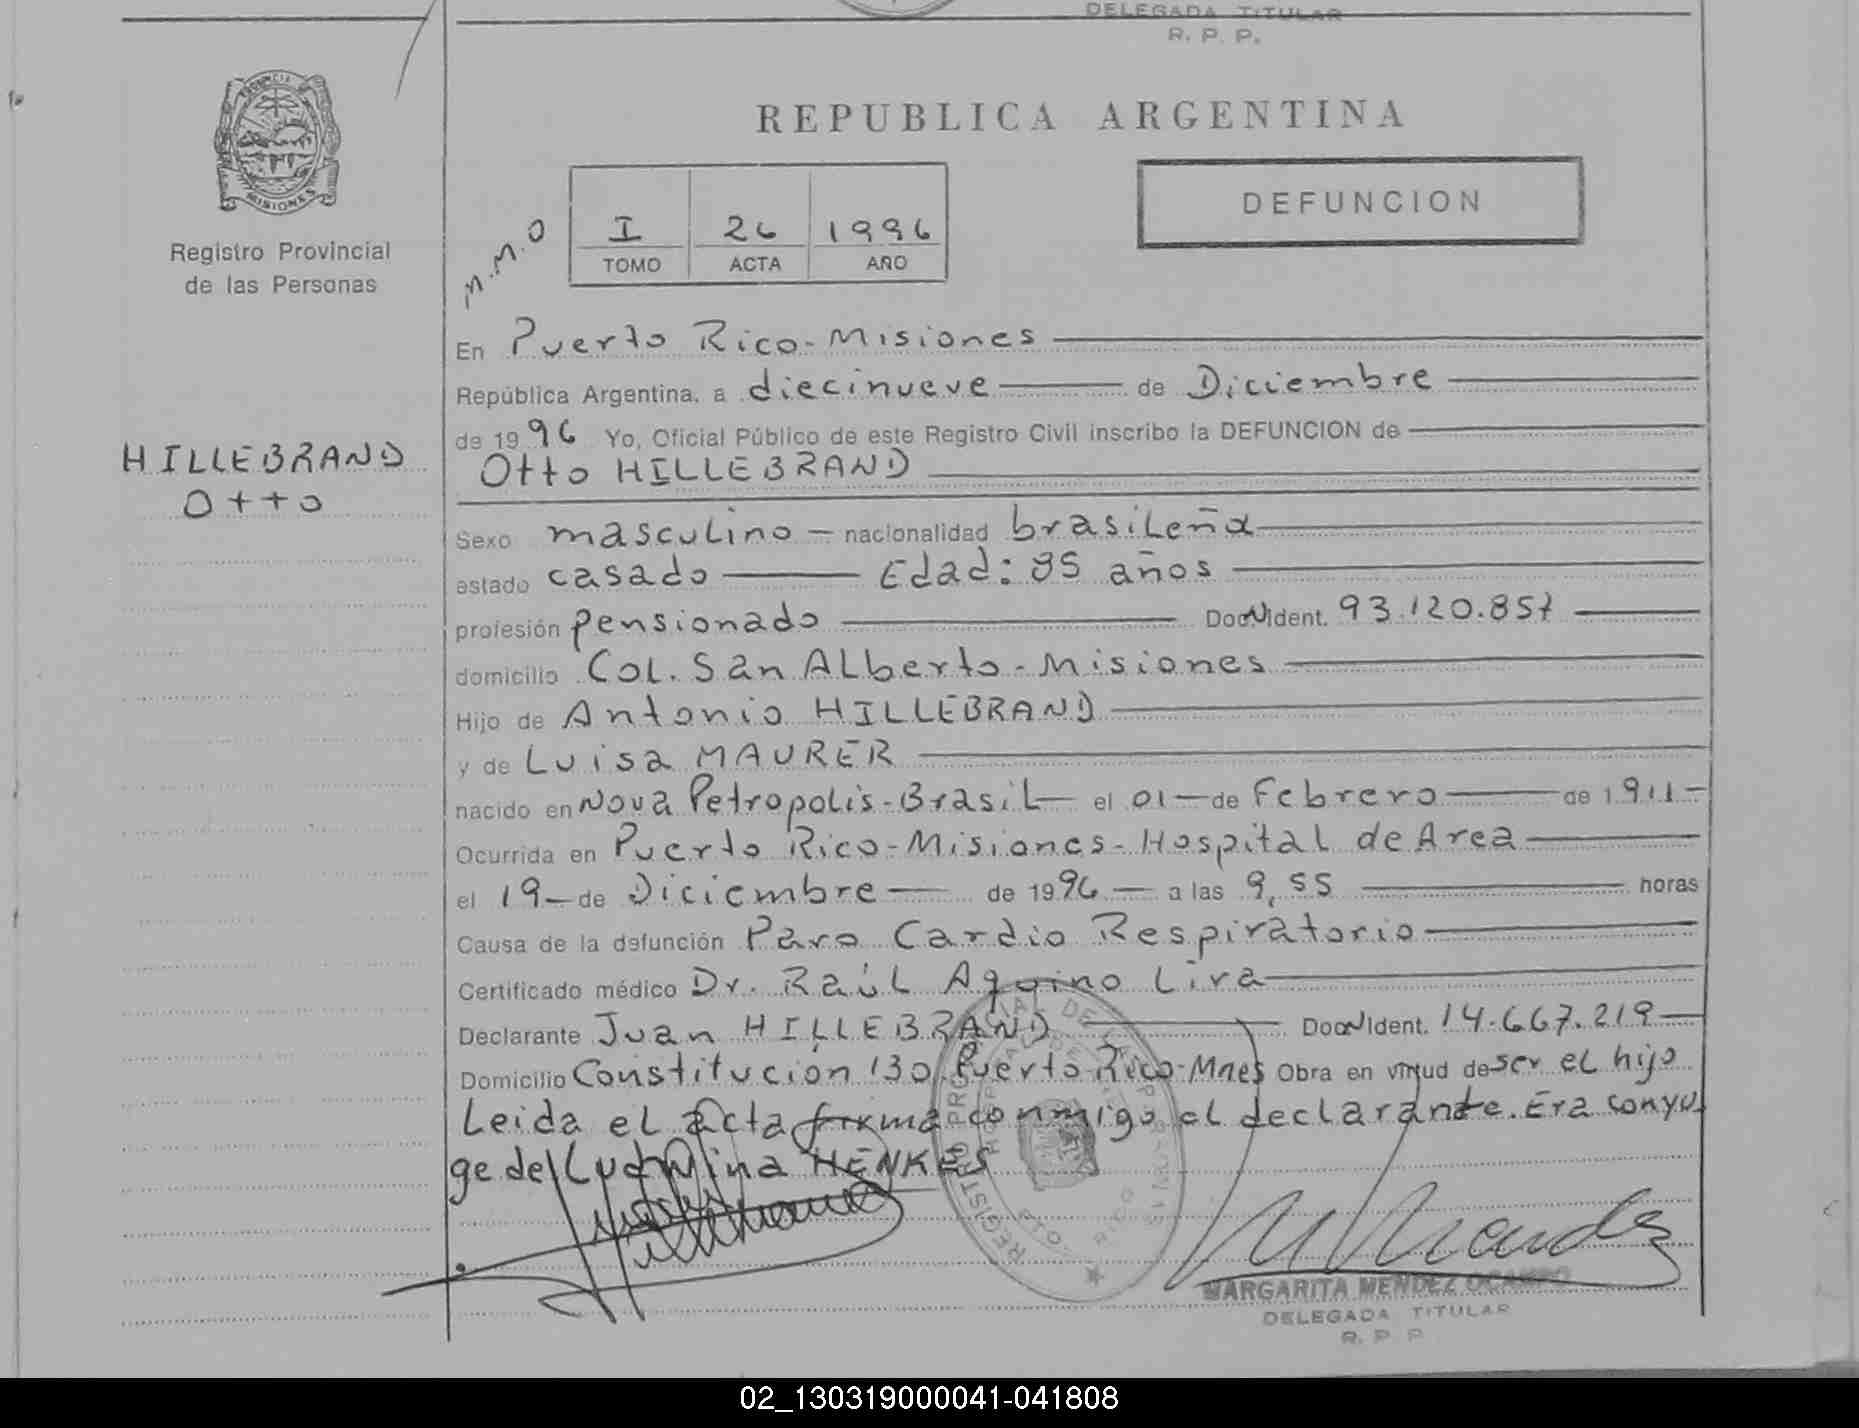 DELEGADA TITULAR
R. P. P.
PROVINCIA
MISIONES
Registro Provincial
de las Personas
REPUBLICA ARGENTINA
M.M.O
I 26 1996
TOMO ACTA AÑO
DEFUNCION
HILLEBRAND
Otto
En Puerto Rico-Misiones
República Argentina, a diecinueve de Diciembre
de 1996 Yo, Oficial Público de este Registro Civil inscribo la DEFUNCION de
Otto HILLEBRAND
Sexo masculino - nacionalidad brasileña
estado casado Edad: 85 años
profesión pensionado Doc N Ident. 93.120.857
domicilio Col. San Alberto - Misiones
Hijo de Antonio HILLEBRAND
y de Luisa MAURER
nacido en Nova Petropolis-Brasil el 01 de Febrero de 1911
Ocurrida en Puerto Rico-Misiones-Hospital de Area
el 19 de Diciembre de 1996 a las 9,55 horas
Causa de la defunción Paro Cardio Respiratorio
Certificado médico Dr. Raúl Aquino Lira
Declarante Juan HILLEBRAND Doc N Ident. 14.667.219
Domicilio Constitución 130 Puerto Rico-Mnes Obra en virtud de ser el hijo
Leida el acta firma conmigo el declarante. Era conyu
ge de Ludmina HENKES
REGISTRO PROVINCIAL DE LAS PERSONAS
PTO. RICO
MARGARITA MENDEZ OCAMPO
DELEGADA TITULAR
R. P. P.
02_130319000041-041808